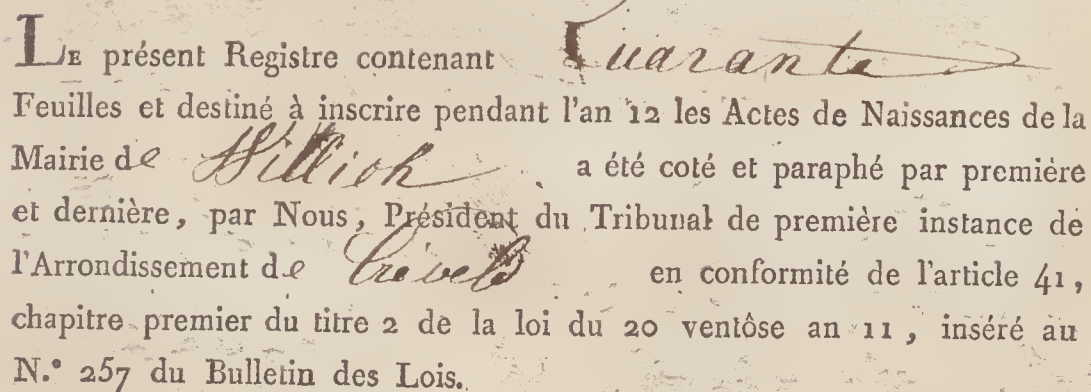 LE présent Registre contenant Quarante
Feuilles et destiné à inscrire pendant l'an 12 les Actes de Naissances de la
Mairie de Willich a été coté et paraphé par première
et dernière, par Nous, Président du Tribunal de première instance de
l'Arrondissement de Créveld en conformité de l'article 41,
chapitre premier du titre 2 de la loi du 20 ventôse an 11, inséré au
N.° 257 du Bulletin des Lois.